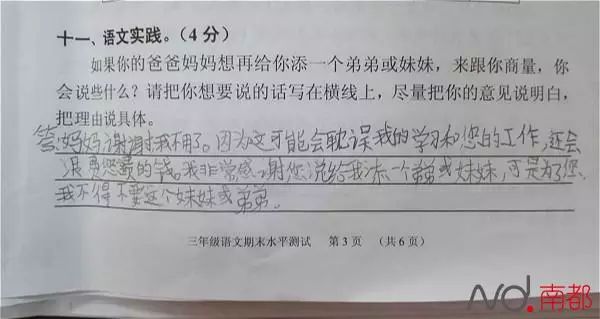 十一、语文实践。(4分)
如果你的爸爸妈妈想再给你添一个弟弟或妹妹，来跟你商量，你
会说些什么？请把你想要说的话写在横线上，尽量把你的意见说明白，
把理由说具体。
答:妈妈谢谢我不用了。因为这可能会耽误我的学习和您的工作，还会
浪费您的钱。我非常感谢您说给我添一个弟弟或妹妹，可是为了您，
我不得不要这个妹妹或弟弟。
三年级语文期末水平测试 第3页 (共6页)
nd.南都